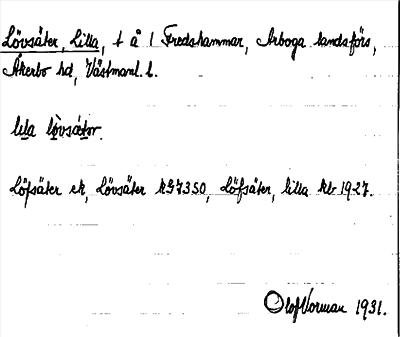 Lövsäter, Lilla, t å 1 Fredshammar, Arboga landsförs,
Åkerbo hd, Västmanl. l.
lila lòvsätər.
Löfsäter ek, Lövsäter KG7350, Löfsäter, lilla kb 1927.
Olof Norman 1931.